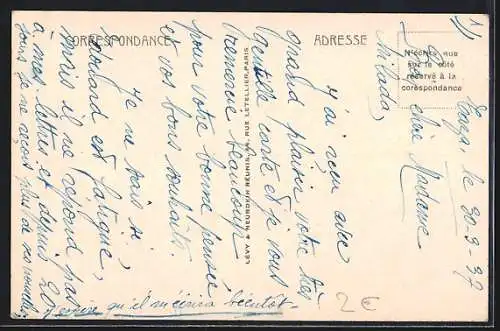 CORRESPONDANCE
ADRESSE
N'écrire que
sur le côté
réservé à la
corespondance
LÉVY & NEURDEIN RÉUNIS, 44, RUE LETELLIER, PARIS
le 30-3-37
chère Madame
J'ai reçu avec
grand plaisir votre très
gentille carte et je vous
remercie beaucoup
pour votre bonne pensée
et vos bons souhaits.
Je ne sais si
Edouard est fatigué,
mais il ne répond pas
à mes lettres et depuis 20
je ne reçois plus de ses nouvelles
J'espère qu'il m'écrira bientôt.
2€